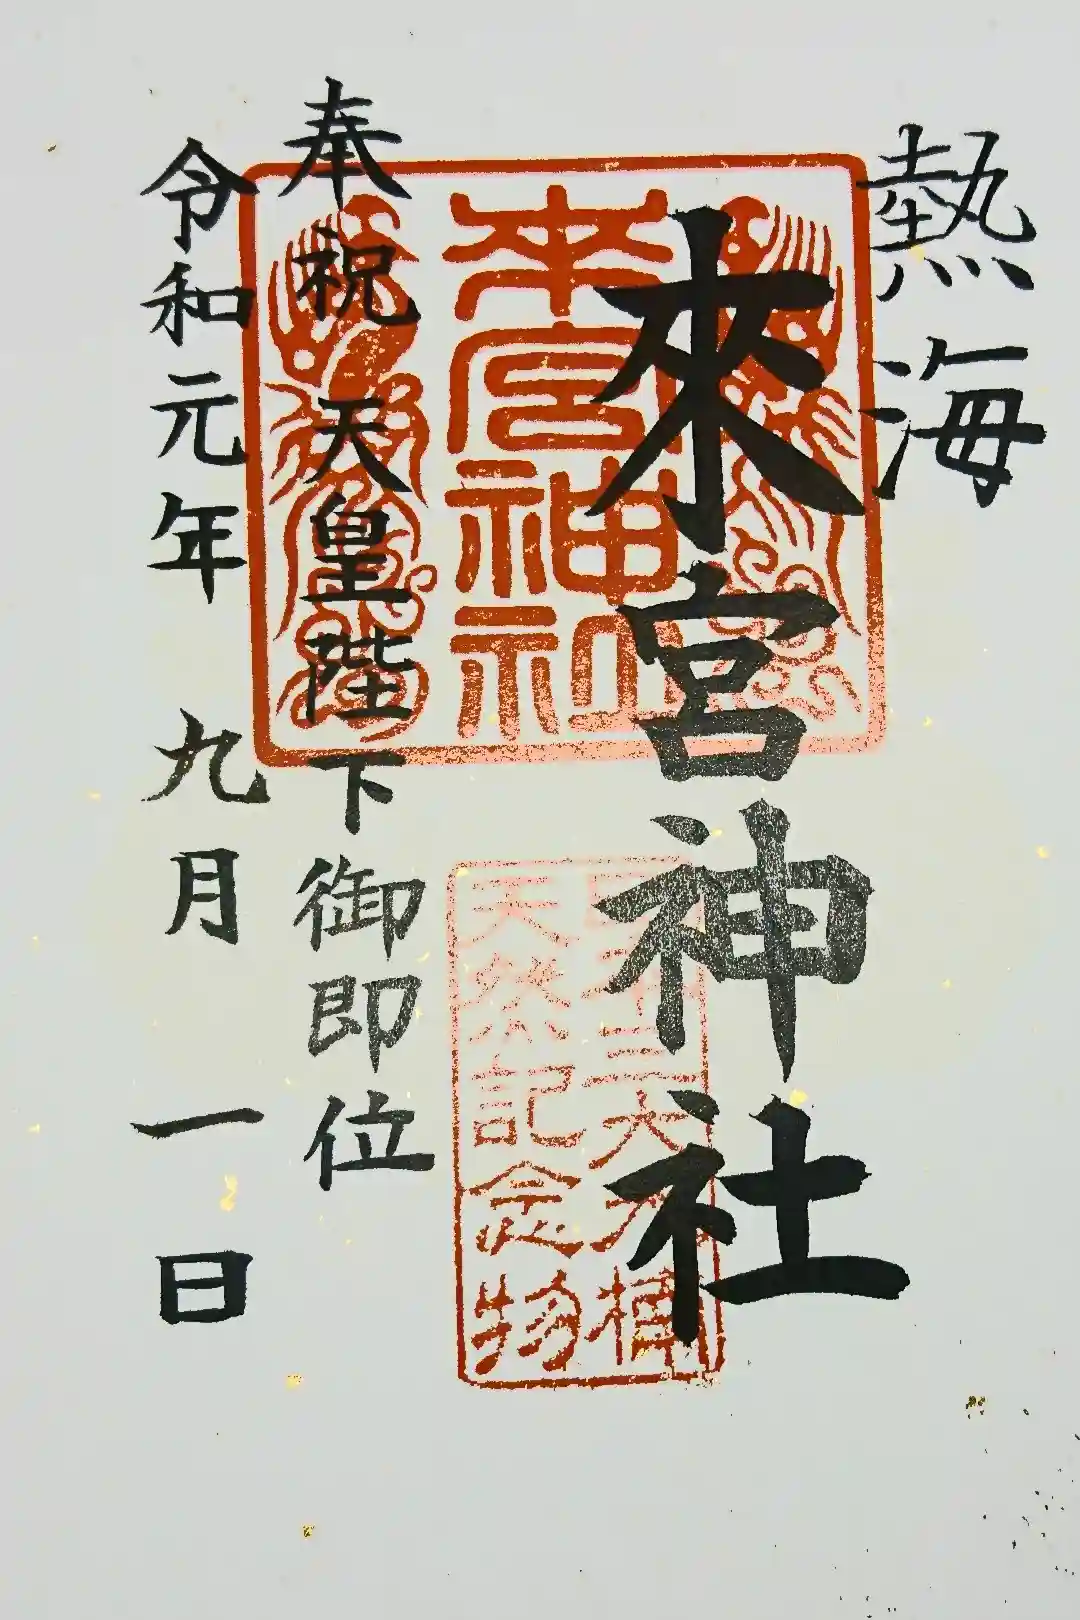 熱海
來宮神社
来宮神社
日本三大大楠
天然記念物
奉祝天皇陛下御即位
令和元年九月一日